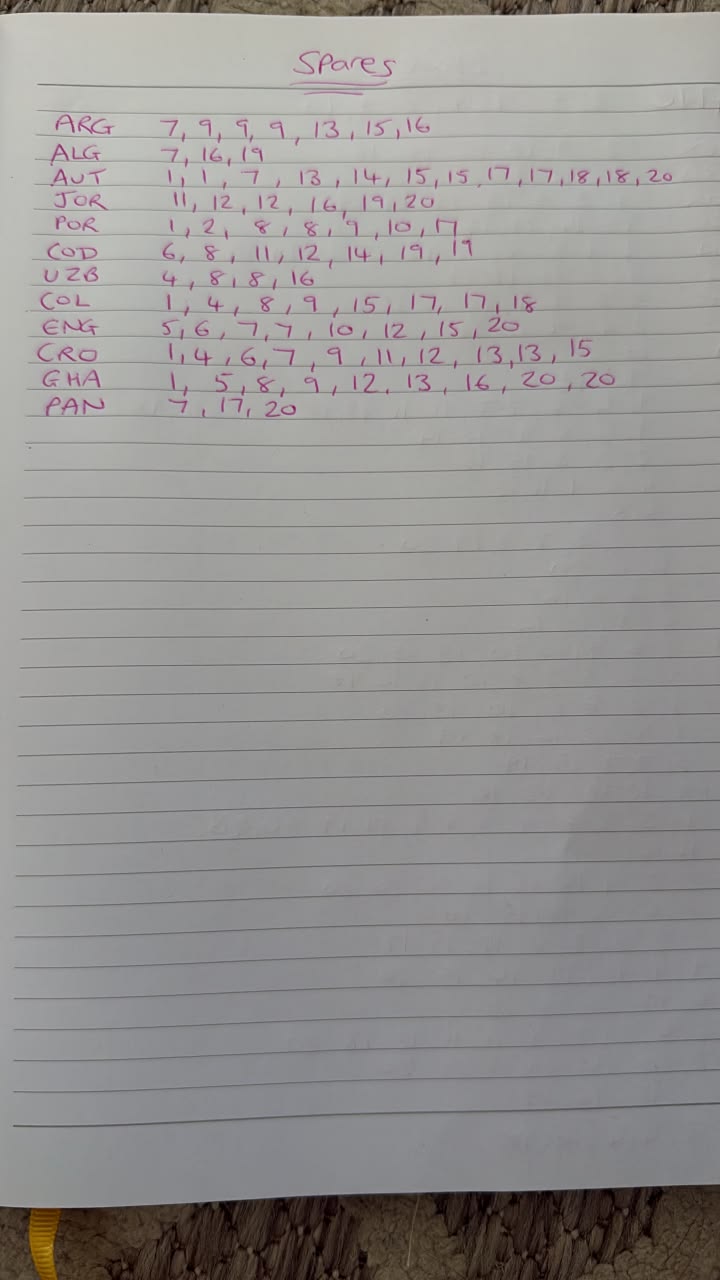 Spares
ARG 7, 9, 9, 9, 13, 15, 16
ALG 7, 16, 19
AUT 1, 1, 7, 13, 14, 15, 15, 17, 17, 18, 18, 20
JOR 11, 12, 12, 16, 19, 20
POR 1, 2, 8, 8, 9, 10, 17
COD 6, 8, 11, 12, 14, 19, 19
UZB 4, 8, 8, 16
COL 1, 4, 8, 9, 15, 17, 17, 18
ENG 5, 6, 7, 7, 10, 12, 15, 20
CRO 1, 4, 6, 7, 9, 11, 12, 13, 13, 15
GHA 1, 5, 8, 9, 12, 13, 16, 20, 20
PAN 7, 17, 20